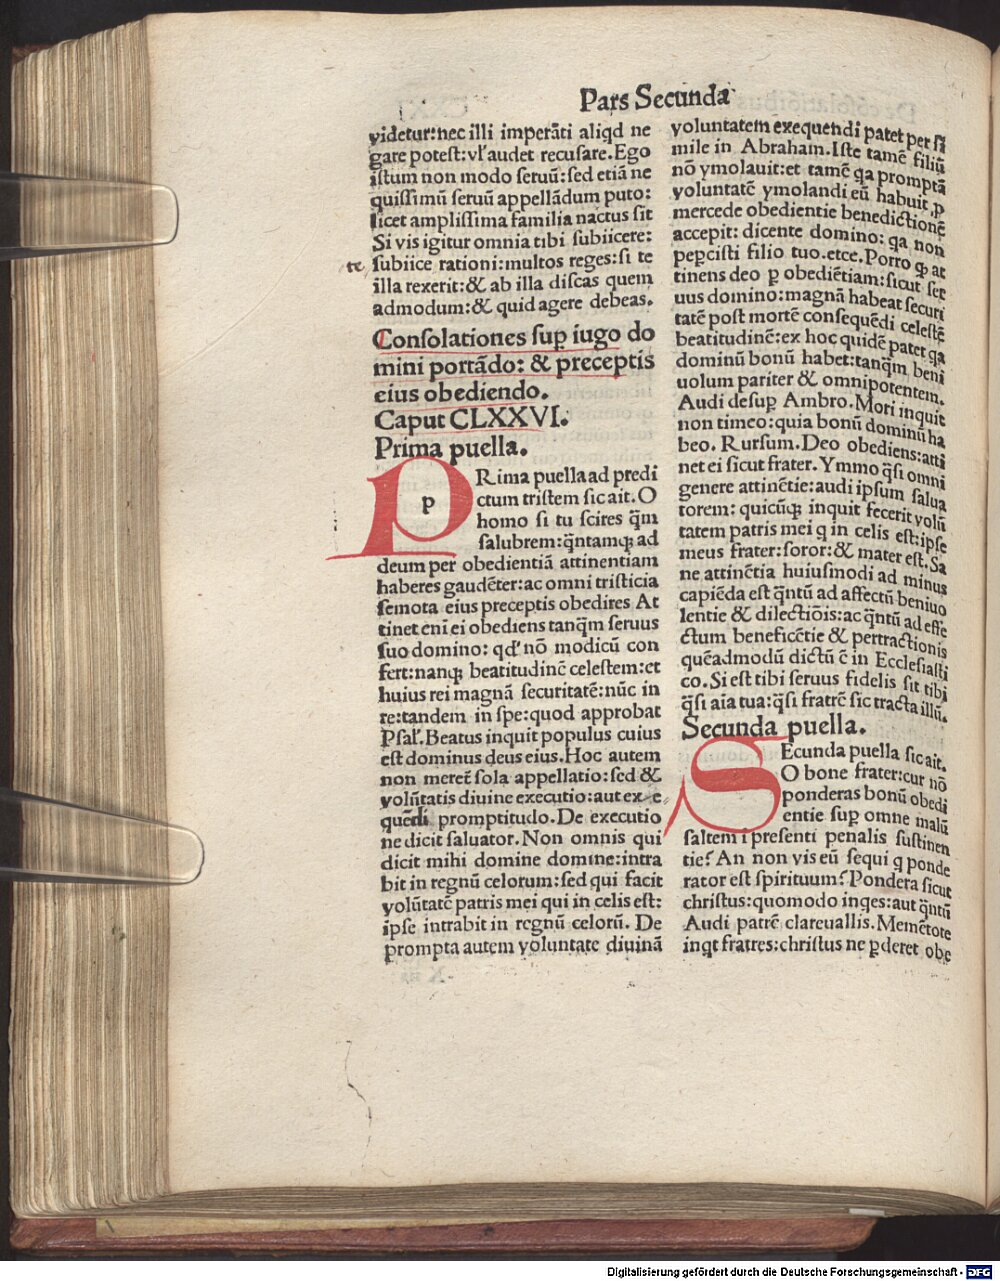 Pars Secunda
videtur: nec illi imperāti aliqd ne
gare potest: vl' audet recusare. Ego
istum non modo seruū: sed etiā ne
quissimū seruū appellādum puto:
licet amplissima familia nactus sit
Si vis igitur omnia tibi subiicere:
te subiice rationi: multos reges: si te
illa rexerit: & ab illa discas quem
admodum: & quid agere debeas.
Consolationes sup̱ iugo do
mini portādo: & preceptis
eius obediendo.
Caput CLXXVI.
Prima puella.
p
PRima puella ad predi
ctum tristem sic ait. O
homo si tu scires q̄m
salubrem: q̄ntamq; ad
deum per obedientiā attinentiam
haberes gaudēter: ac omni tristicia
semota eius preceptis obedires At
tinet eni ei obediens tanq̄m seruus
suo domino: qd' nō modicū con
fert: nanq; beatitudinē celestem: et
huius rei magnā securitatē: nūc in
re: tandem in spe: quod approbat
Psal'. Beatus inquit populus cuius
est dominus deus eius. Hoc autem
non meret̄ sola appellatio: sed &
volūtatis diuine executio: aut ex e
quēdi promptitudo. De executio
ne dicit saluator. Non omnis qui
dicit mihi domine domine: intra
bit in regnū celorum: sed qui facit
volūtatē patris mei qui in celis est:
ipse intrabit in regnū celorū. De
prompta autem voluntate diuinā
voluntatem exequendi patet per si
mile in Abraham. Iste tamē filiū
nō ymolauit: et tamē qa promptā
voluntatē ymolandi eū habuit, p̱
mercede obedientie benedictionē
accepit: dicente domino: qa non
pep̱cisti filio tuo. etce. Porro q̱ at
tinens deo p̱ obediētiam: sicut ser
uus domino: magnā habeat securi
tatē post mortē consequēdi celestē
beatitudinē: ex hoc quidē patet qa
dominū bonū habet: tanq̄m beni
uolum pariter & omnipotentem.
Audi desup̱ Ambro. Mori inquit
non timeo: quia bonū dominū ha
beo. Rursum. Deo obediens: atti
net ei sicut frater. Ymmo q̄si omni
genere attinētie: audi ipsum salua
torem: quicūq; inquit fecerit volū
tatem patris mei q in celis est: ipse
meus frater: soror: & mater est. Sa
ne attinētia huiusmodi ad minus
capiēda est q̄ntū ad affectū beniuo
lentie & dilectiōis: ac q̄ntū ad effe
ctum beneficētie & pertractionis
quēadmodū dictū ē in Ecclesiasti
co. Si est tibi seruus fidelis sit tibi
q̄si aīa tua: q̄si fratrē sic tracta illū.
Secunda puella.
SEcunda puella sic ait.
O bone frater: cur nō
ponderas bonū obedi
entie sup̱ omne malū
saltem ī presenti penalis sustinen
tie? An non vis eū sequi q ponde
rator est spirituum? Pondera sicut
christus: quomodo inqes: aut q̄ntū
Audi patrē clareuallis. Memētote
inqt fratres: christus ne p̱deret obe
Digitalisierung gefördert durch die Deutsche Forschungsgemeinschaft - DFG